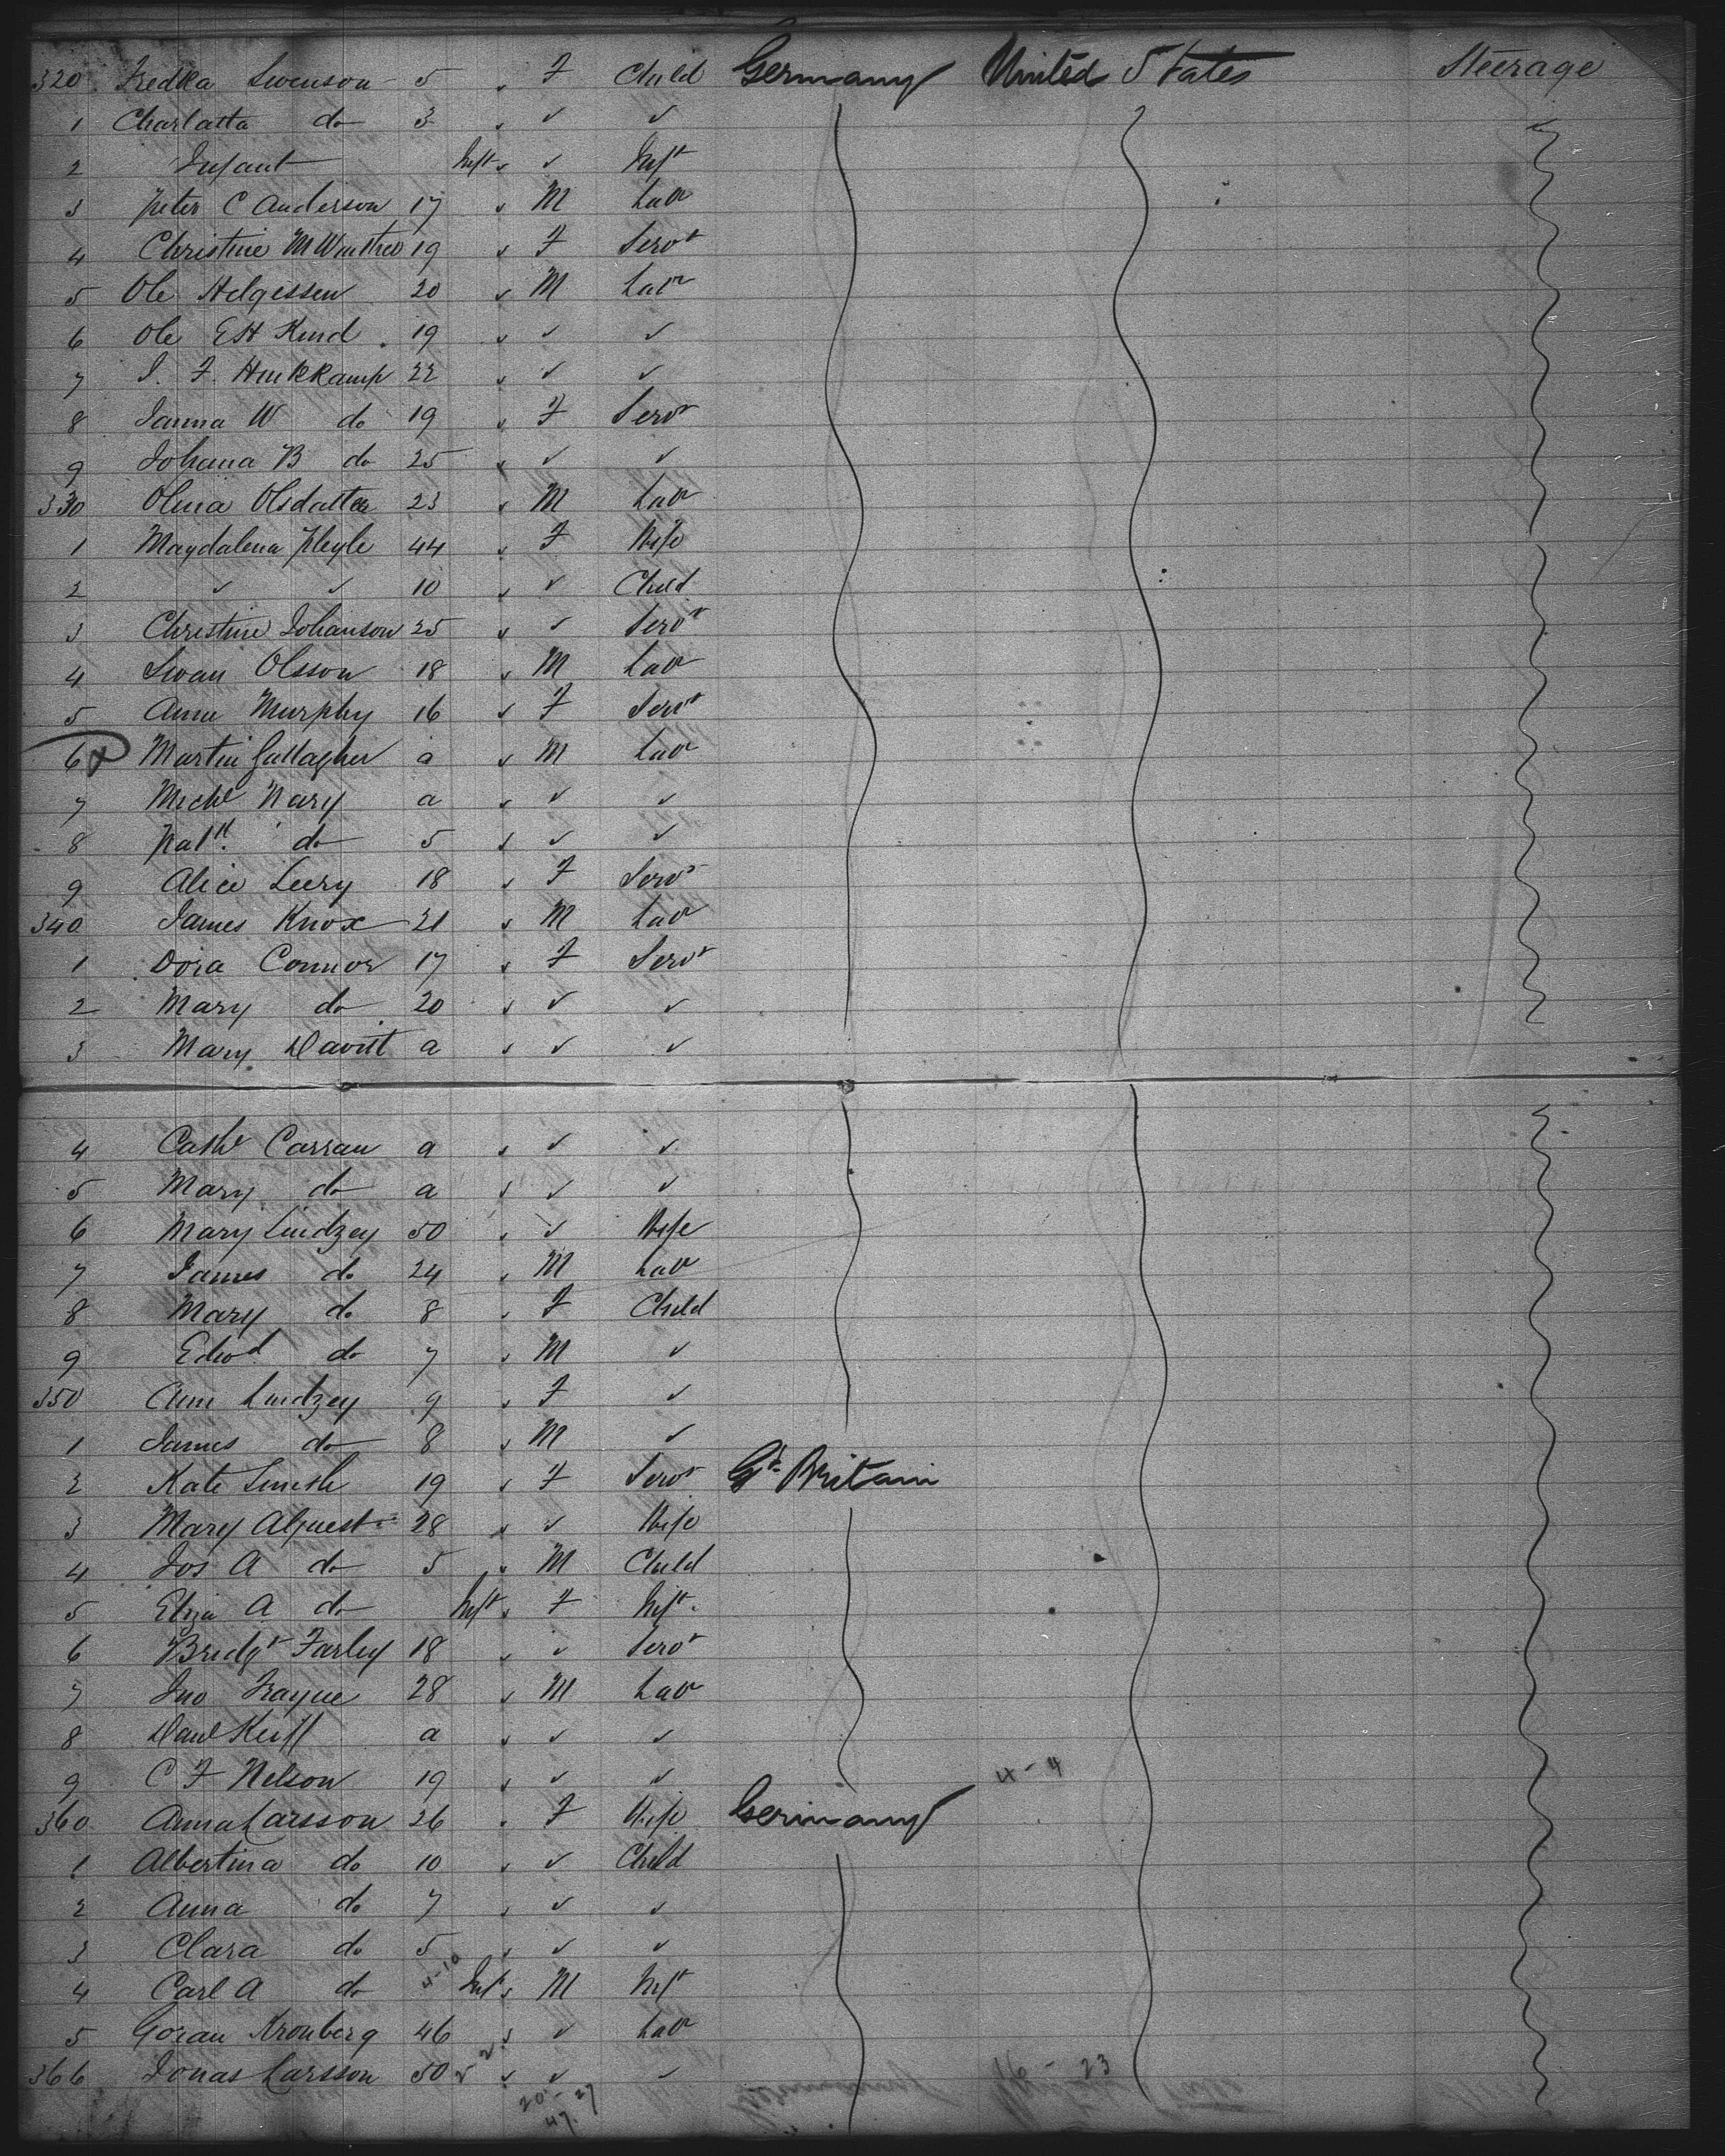 320 Fredka Swenson 5 F Child Germany United States Steerage
1 Charlatta do 3 ✓ ✓
2 Infant Inft ✓ Inft
3 Peter C Anderson 17 M Labr
4 Christine M 19 F Servt
5 Ole Helgessen 20 M Labr
6 Ole Est Kind 19 ✓ ✓
7 I. F. Hukkamp 22 ✓ ✓
8 Janna W do 19 F Servt
9 Johana B do 25 ✓ ✓
330 Olina Olsdatter 23 M Labr
1 Magdalena Pleyle 44 F Wife
2 ✓ ✓ 10 ✓ Child
3 Christine Johanson 25 ✓ Servt
4 Swan Olsson 18 M Labr
5 Anne Murphy 16 F Servt
6 X Martin Gallagher a M Labr
7 Michl Nary a ✓ ✓
8 Patk do 5 ✓ ✓
9 Alice Leery 18 F Servt
340 James Knox 21 M Labr
1 Dora Connor 17 F Servt
2 Mary do 20 ✓ ✓
3 Mary Davitt a ✓ ✓
4 Cathe Carran a ✓ ✓
5 Mary do a ✓ ✓
6 Mary Lindzey 50 ✓ Wife
7 James do 24 M Labr
8 Mary do 8 F Child
9 Edwd do 7 M ✓
350 Ann Lindzey 9 F ✓
1 James do 8 M ✓
2 Kate Smith 19 F Servt Gt Britain
3 Mary Alquest 28 ✓ Wife
4 Jos A do 5 M Child
5 Eliza A do Inft F Inft
6 Bridgt Farley 18 ✓ Servt
7 Jno Frayne 28 M Labr
8 Danl Keiff a ✓ ✓
9 C F Nelson 19 ✓ ✓ 4-4
360 Anna Larsson 26 F Wife Germany
1 Albertina do 10 ✓ Child
2 Anna do 7 ✓ ✓
3 Clara do 5 ✓ ✓
4 Carl A do 4-10 Inft M Inft
5 Goran Kronberg 46 ✓ Labr
366 Jonas Larsson 50 ✓ ✓ 16-23
20-27
47.